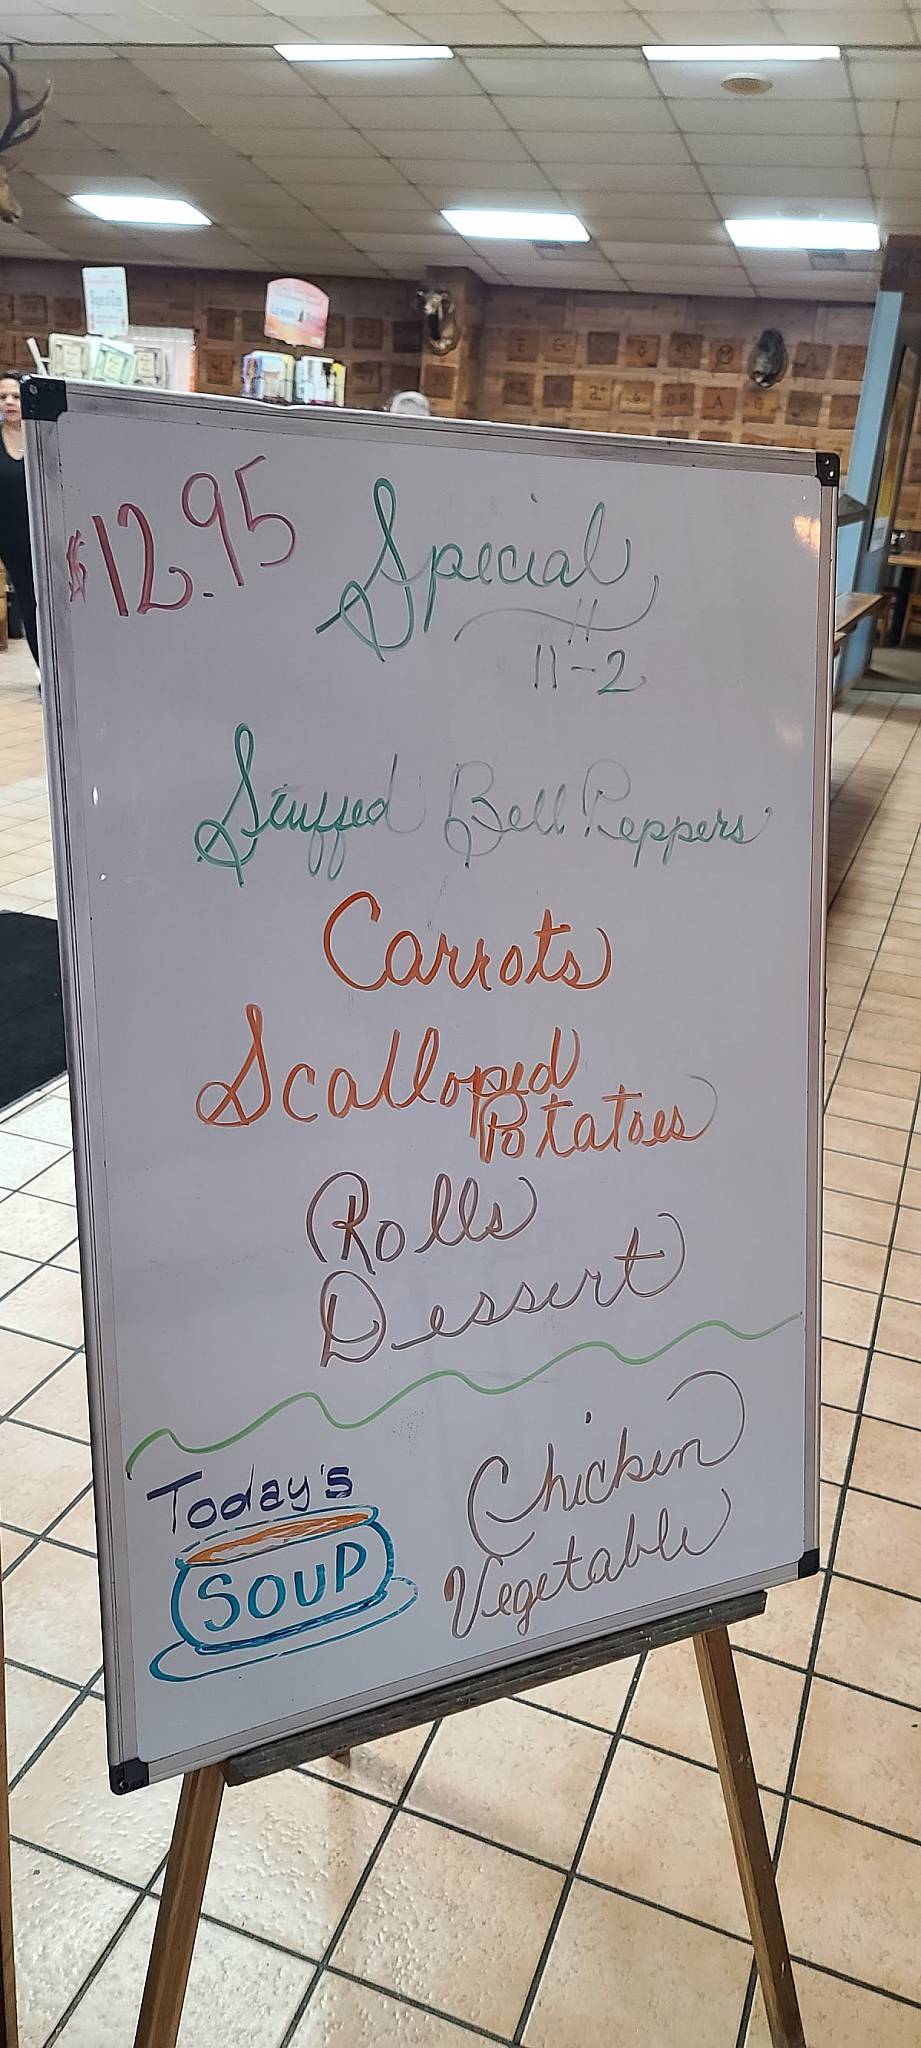 $12.95 Special
11-2
Stuffed Bell Peppers
Carrots
Scalloped
Potatoes
Rolls
Dessert
Today's
SOUP
Chicken
Vegetable